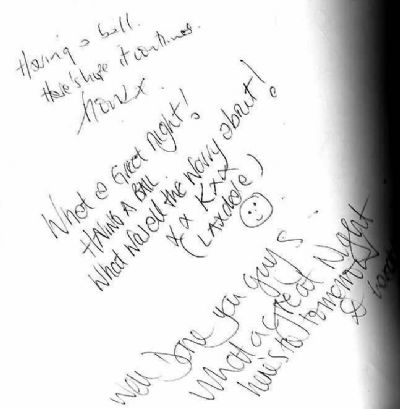 Having a ball.
Here's hope it continues.
What a Great night!
HAVING A BALL
What was all the worry about!
xx K xx
(Laxdale)
Well Done you guys
What a great Night
here's to tomorrow
&